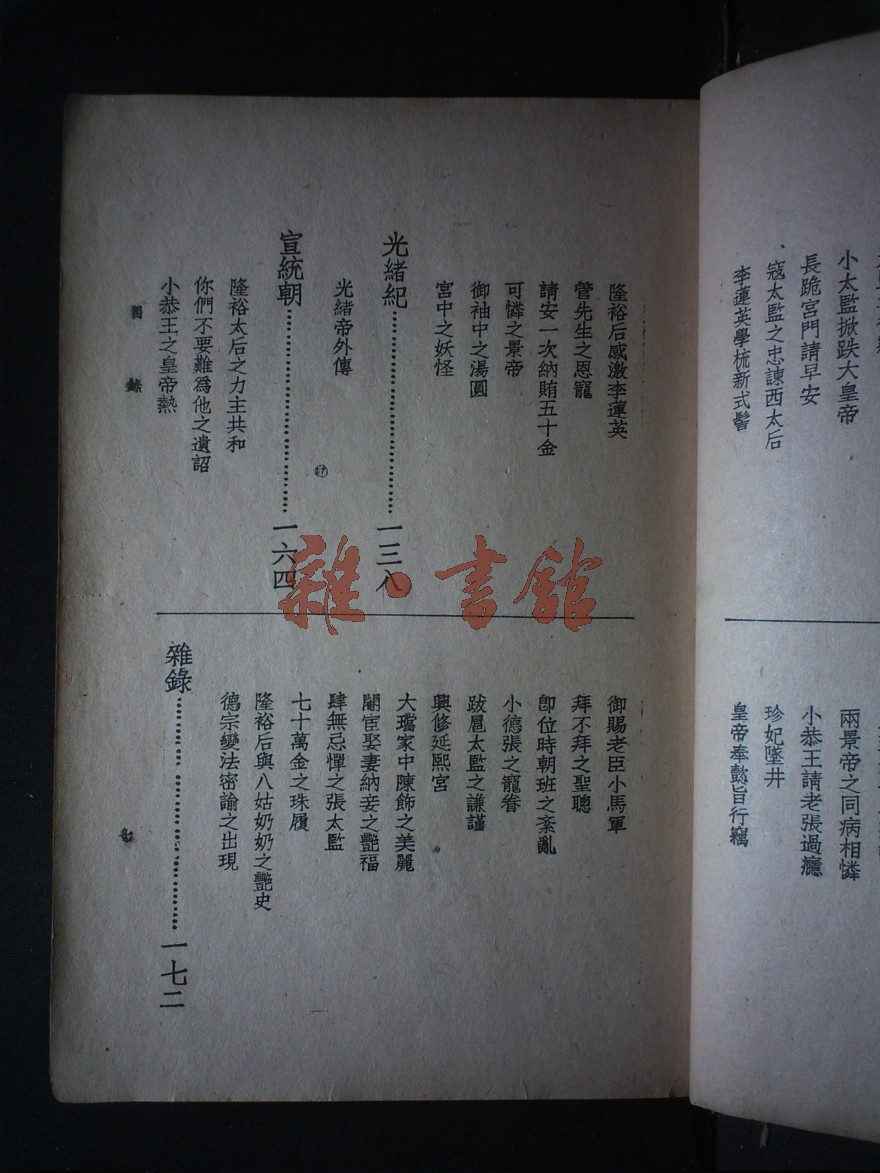 小太監掀跌大皇帝
長跪宮門請早安
寇太監之忠諫西太后
李蓮英學梳新式髻
兩景帝之同病相憐
小恭王請老張過癮
珍妃墜井
皇帝奉懿旨行竊
隆裕后感激李蓮英
管先生之恩寵
請安一次納賄五十金
可憐之景帝
御袖中之湯圓
宮中之妖怪
光緒紀……一三八
光緒帝外傳
宣統朝……一六四
隆裕太后之力主共和
你們不要難為他之遺詔
小恭王之皇帝熱
御賜老臣小馬軍
拜不拜之聖聰
卽位時朝班之紊亂
小德張之寵眷
跋扈太監之謙謹
興修延熙宮
大璫家中陳飾之美麗
閹宦娶妻納妾之艷福
肆無忌憚之張太監
七十萬金之珠履
隆裕后與八姑奶奶之艷史
德宗變法密諭之出現
雜錄……一七二
目錄
七
雜·書館